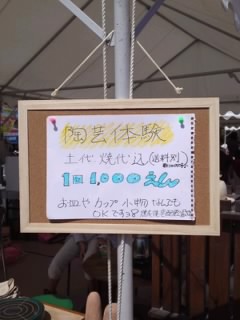 陶芸体験
土代 焼代込(送料別)
1回1,000えん
お皿やカップ 小物 なんでも
OKですョ